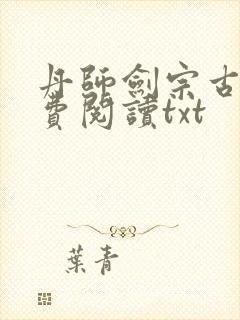 丹師劍宗古
費閱讀txt
葉青